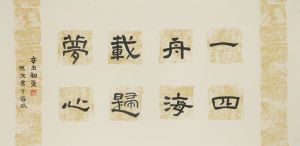 一舟載夢
四海歸心
辛丑初夏